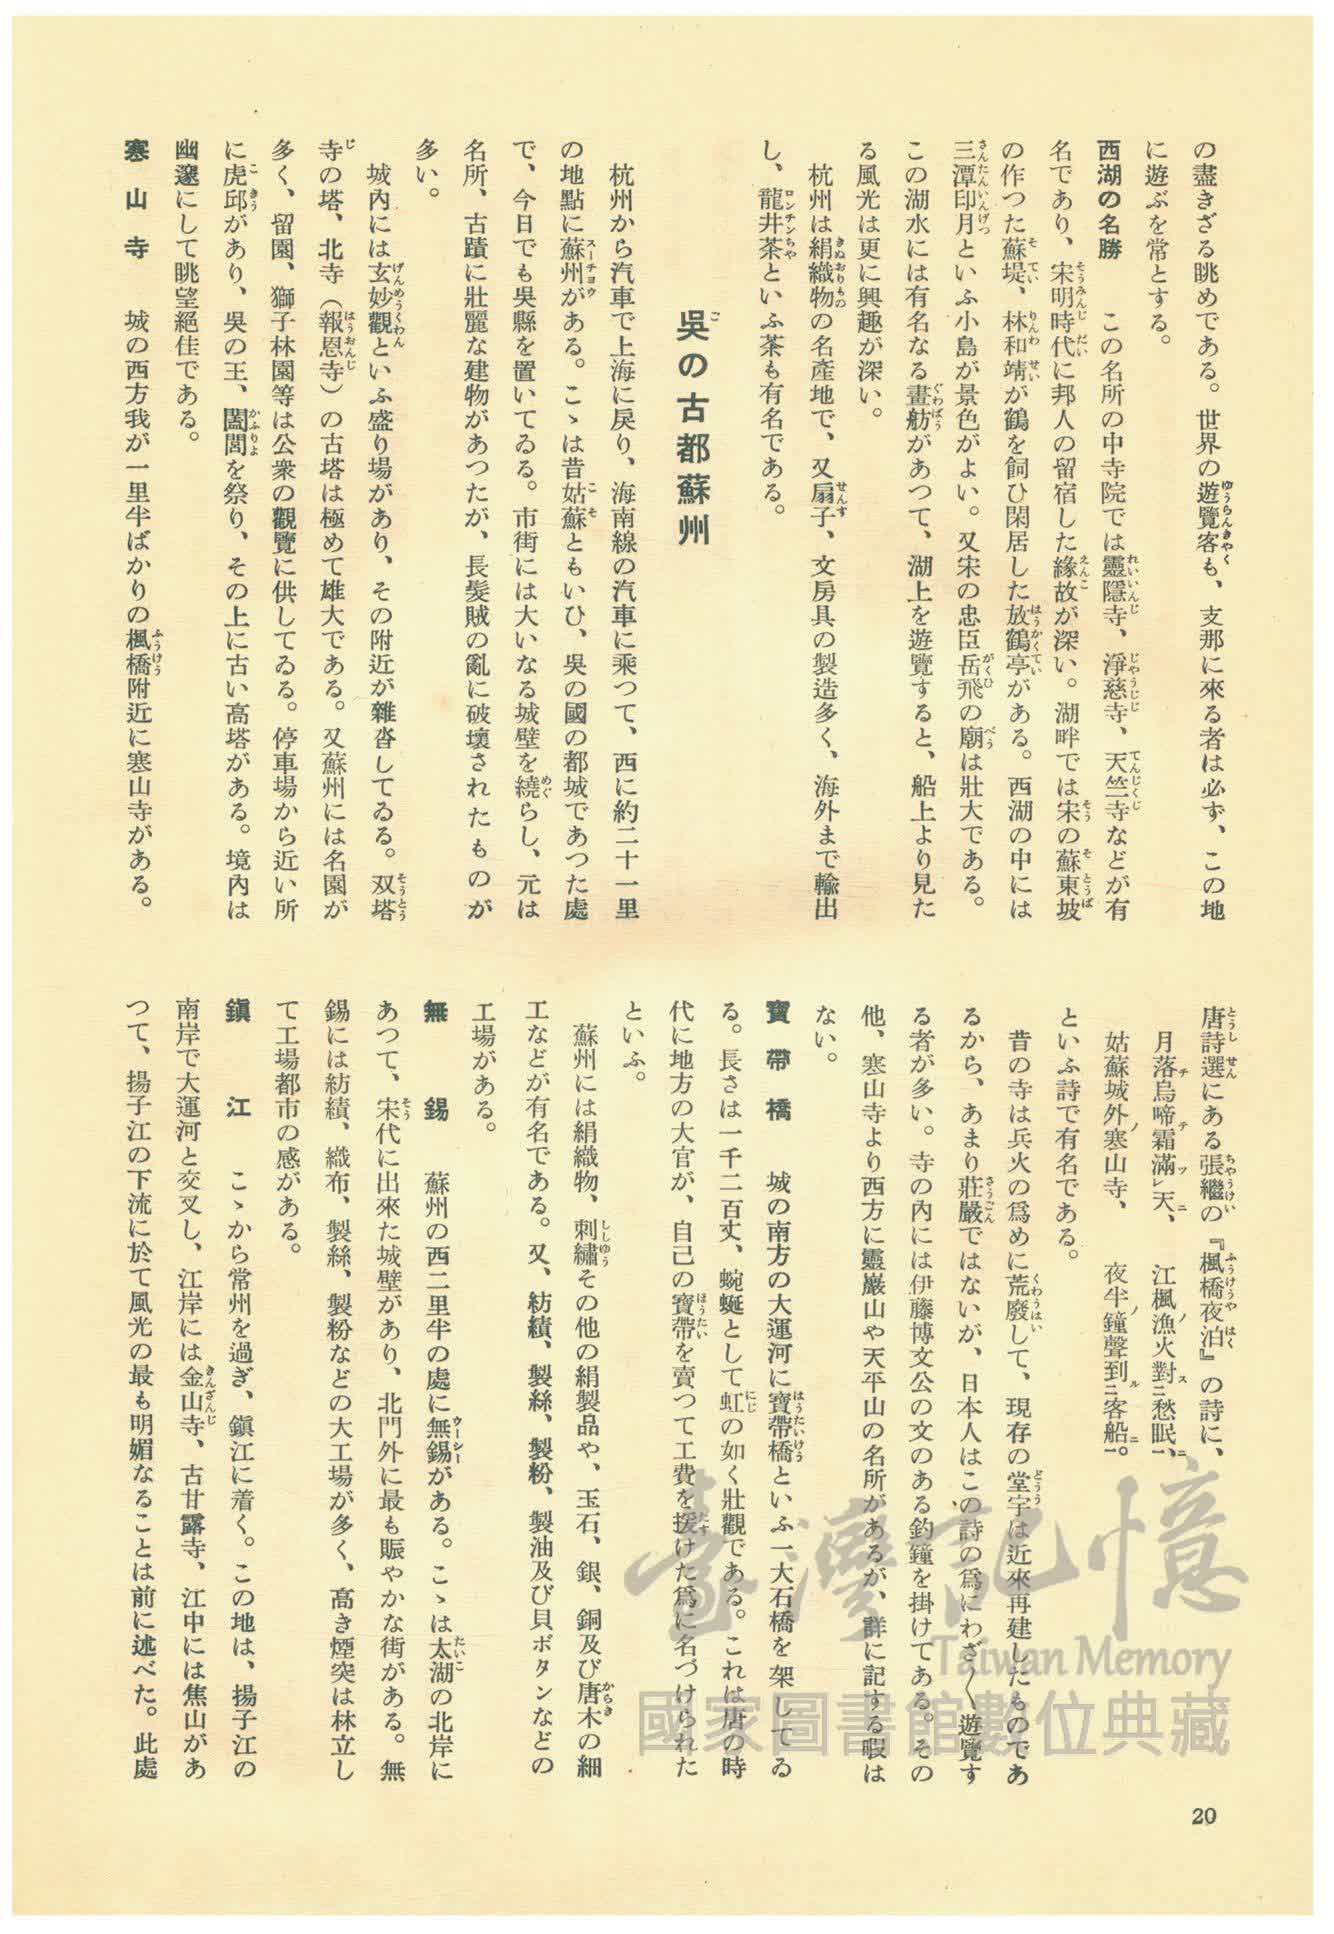 の盡きざる眺めである。世界の遊覽客も、支那に來る者は必ず、この地
に遊ぶを常とする。
西湖の名勝　この名所の中寺院では靈隱寺、淨慈寺、天竺寺などが有
名であり、宋明時代に邦人の留宿した緣故が深い。湖畔では宋の蘇東坡
の作つた蘇堤、林和靖が鶴を飼ひ閑居した放鶴亭がある。西湖の中には
三潭印月といふ小島が景色がよい。又宋の忠臣岳飛の廟は壯大である。
この湖水には有名なる畫舫があつて、湖上を遊覽すると、船上より見た
る風光は更に興趣が深い。
杭州は絹織物の名產地で、又扇子、文房具の製造多く、海外まで輸出
し、龍井茶といふ茶も有名である。
吳の古都蘇州
杭州から汽車で上海に戾り、海南線の汽車に乘つて、西に約二十一里
の地點に蘇州がある。こゝは昔姑蘇ともいひ、吳の國の都城であつた處
で、今日でも吳縣を置いてゐる。市街には大いなる城壁を繞らし、元は
名所、古蹟に壯麗な建物があつたが、長髮賊の亂に破壞されたものが
多い。
城內には玄妙觀といふ盛り場があり、その附近が雜沓してゐる。双塔
寺の塔、北寺（報恩寺）の古塔は極めて雄大である。又蘇州には名園が
多く、留園、獅子林園等は公衆の觀覽に供してゐる。停車場から近い所
に虎邱があり、吳の王、闔閭を祭り、その上に古い高塔がある。境內は
幽邃にして眺望絕佳である。
寒山寺　城の西方我が一里半ばかりの楓橋附近に寒山寺がある。
唐詩選にある張繼の『楓橋夜泊』の詩に、
月落チ烏啼テ霜滿ツレ天ニ、　江楓ノ漁火對スニ愁眠ニ一、
姑蘇城外ノ寒山寺、　夜半ノ鐘聲到ルニ客船ニ一。
といふ詩で有名である。
昔の寺は兵火の爲めに荒廢して、現存の堂宇は近來再建したものであ
るから、あまり莊嚴ではないが、日本人はこの詩の爲にわざ〱遊覽す
る者が多い。寺の內には伊藤博文公の文のある釣鐘を掛けてある。その
他、寒山寺より西方に靈巖山や天平山の名所があるが、詳に記する暇は
ない。
寶帶橋　城の南方の大運河に寶帶橋といふ一大石橋を架してゐ
る。長さは一千二百丈、蜿蜒として虹の如く壯觀である。これは唐の時
代に地方の大官が、自己の寶帶を賣つて工費を援けた爲に名づけられた
といふ。
蘇州には絹織物、刺繡その他の絹製品や、玉石、銀、銅及び唐木の細
工などが有名である。又、紡績、製絲、製粉、製油及び貝ボタンなどの
工場がある。
無錫　蘇州の西二里半の處に無錫がある。こゝは太湖の北岸に
あつて、宋代に出來た城壁があり、北門外に最も賑やかな街がある。無
錫には紡績、織布、製絲、製粉などの大工場が多く、高き煙突は林立し
て工場都市の感がある。
鎭江　こゝから常州を過ぎ、鎭江に着く。この地は、揚子江の
南岸で大運河と交叉し、江岸には金山寺、古甘露寺、江中には焦山があ
つて、揚子江の下流に於て風光の最も明媚なることは前に述べた。此處
臺灣記憶
Taiwan Memory
國家圖書館數位典藏
20